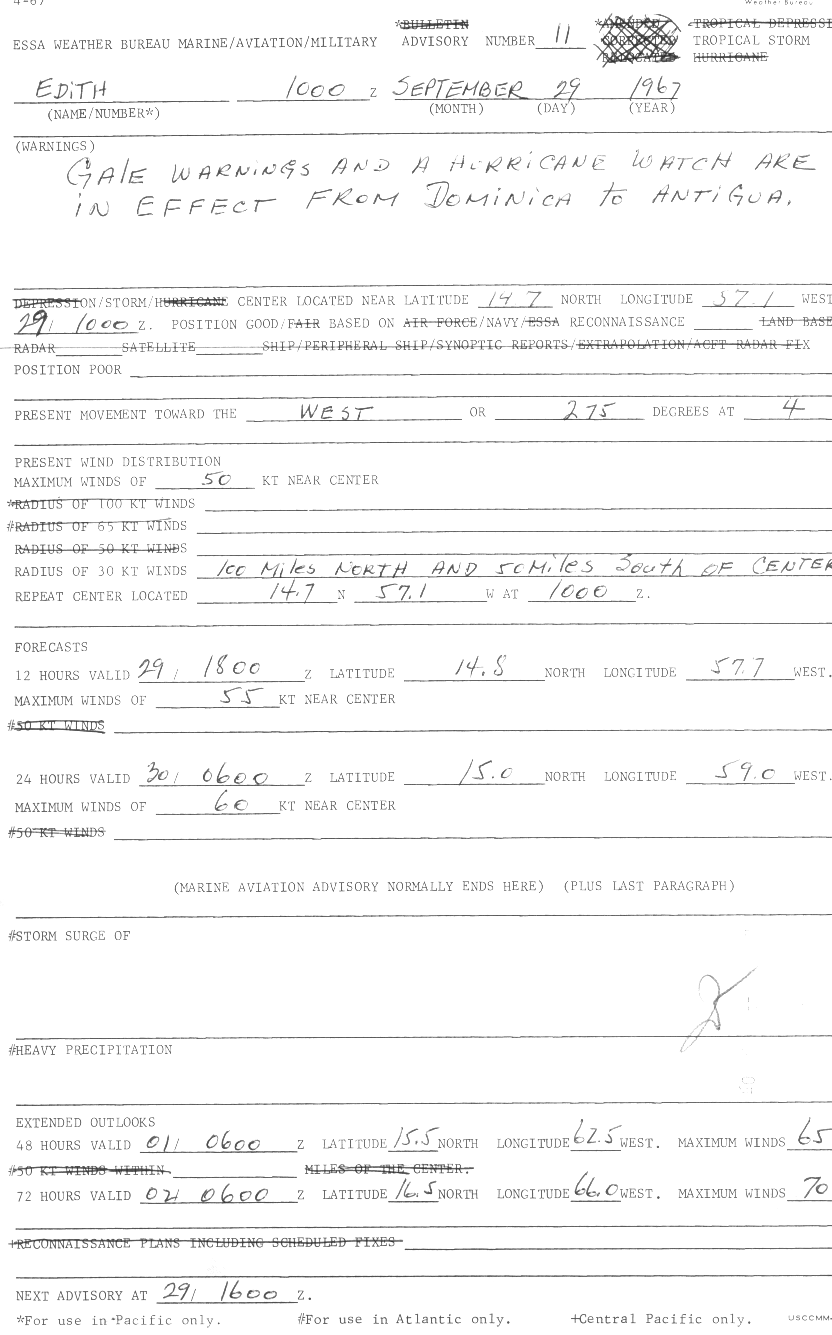 4-67
Weather Bureau
*BULLETIN *AMENDED TROPICAL DEPRESSI
ESSA WEATHER BUREAU MARINE/AVIATION/MILITARY ADVISORY NUMBER 11 CORRECTED TROPICAL STORM
RELOCATED HURRICANE
EDITH 1000 Z SEPTEMBER 29 1967
(NAME/NUMBER*) (MONTH) (DAY) (YEAR)
(WARNINGS)
GALE WARNINGS AND A HURRICANE WATCH ARE
IN EFFECT FROM DOMINICA to ANTIGUA.
DEPRESSION/STORM/HURRICANE CENTER LOCATED NEAR LATITUDE 14 7 NORTH LONGITUDE 57.1 WEST
29/ 1000 Z. POSITION GOOD/FAIR BASED ON AIR FORCE/NAVY/ESSA RECONNAISSANCE LAND BASE
RADAR SATELLITE SHIP/PERIPHERAL SHIP/SYNOPTIC REPORTS/EXTRAPOLATION/ACFT RADAR FIX
POSITION POOR
PRESENT MOVEMENT TOWARD THE WEST OR 275 DEGREES AT 4
PRESENT WIND DISTRIBUTION
MAXIMUM WINDS OF 50 KT NEAR CENTER
*RADIUS OF 100 KT WINDS
#RADIUS OF 65 KT WINDS
RADIUS OF 50 KT WINDS
RADIUS OF 30 KT WINDS 100 Miles NORTH AND 50 Miles South OF CENTER
REPEAT CENTER LOCATED 14.7 N 57.1 W AT 1000 Z.
FORECASTS
12 HOURS VALID 29/ 1800 Z LATITUDE 14.8 NORTH LONGITUDE 57.7 WEST.
MAXIMUM WINDS OF 55 KT NEAR CENTER
#50 KT WINDS
24 HOURS VALID 30/ 0600 Z LATITUDE 15.0 NORTH LONGITUDE 59.0 WEST.
MAXIMUM WINDS OF 60 KT NEAR CENTER
#50 KT WINDS
(MARINE AVIATION ADVISORY NORMALLY ENDS HERE) (PLUS LAST PARAGRAPH)
#STORM SURGE OF
#HEAVY PRECIPITATION
EXTENDED OUTLOOKS
48 HOURS VALID 01/ 0600 Z LATITUDE 15.5 NORTH LONGITUDE 62.5 WEST. MAXIMUM WINDS 65
#50 KT WINDS WITHIN MILES OF THE CENTER.
72 HOURS VALID 02/ 0600 Z LATITUDE 16.5 NORTH LONGITUDE 66.0 WEST. MAXIMUM WINDS 70
+RECONNAISSANCE PLANS INCLUDING SCHEDULED FIXES
NEXT ADVISORY AT 29/ 1600 Z.
*For use in Pacific only. #For use in Atlantic only. +Central Pacific only. USCCMM